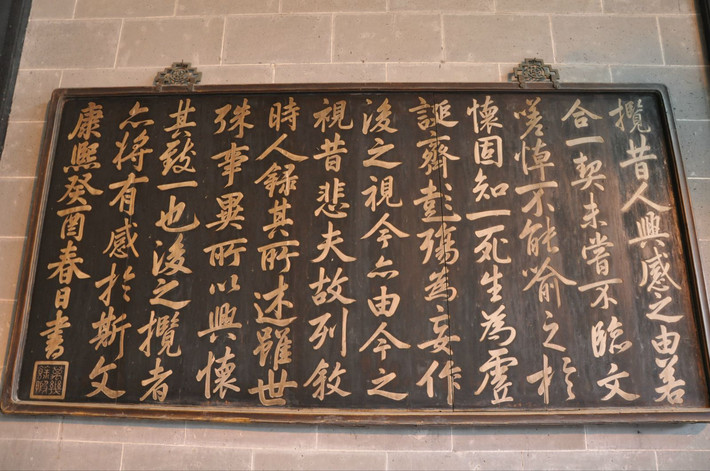 攬昔人興感之由若
合一契未嘗不臨文
嗟悼不能喻之於
懷固知一死生為虛
誕齊彭殤為妄作
後之視今亦由今之
視昔悲夫故列敘
時人錄其所述雖世
殊事異所以興懷
其致一也後之攬者
亦將有感於斯文
康熙癸酉春日書